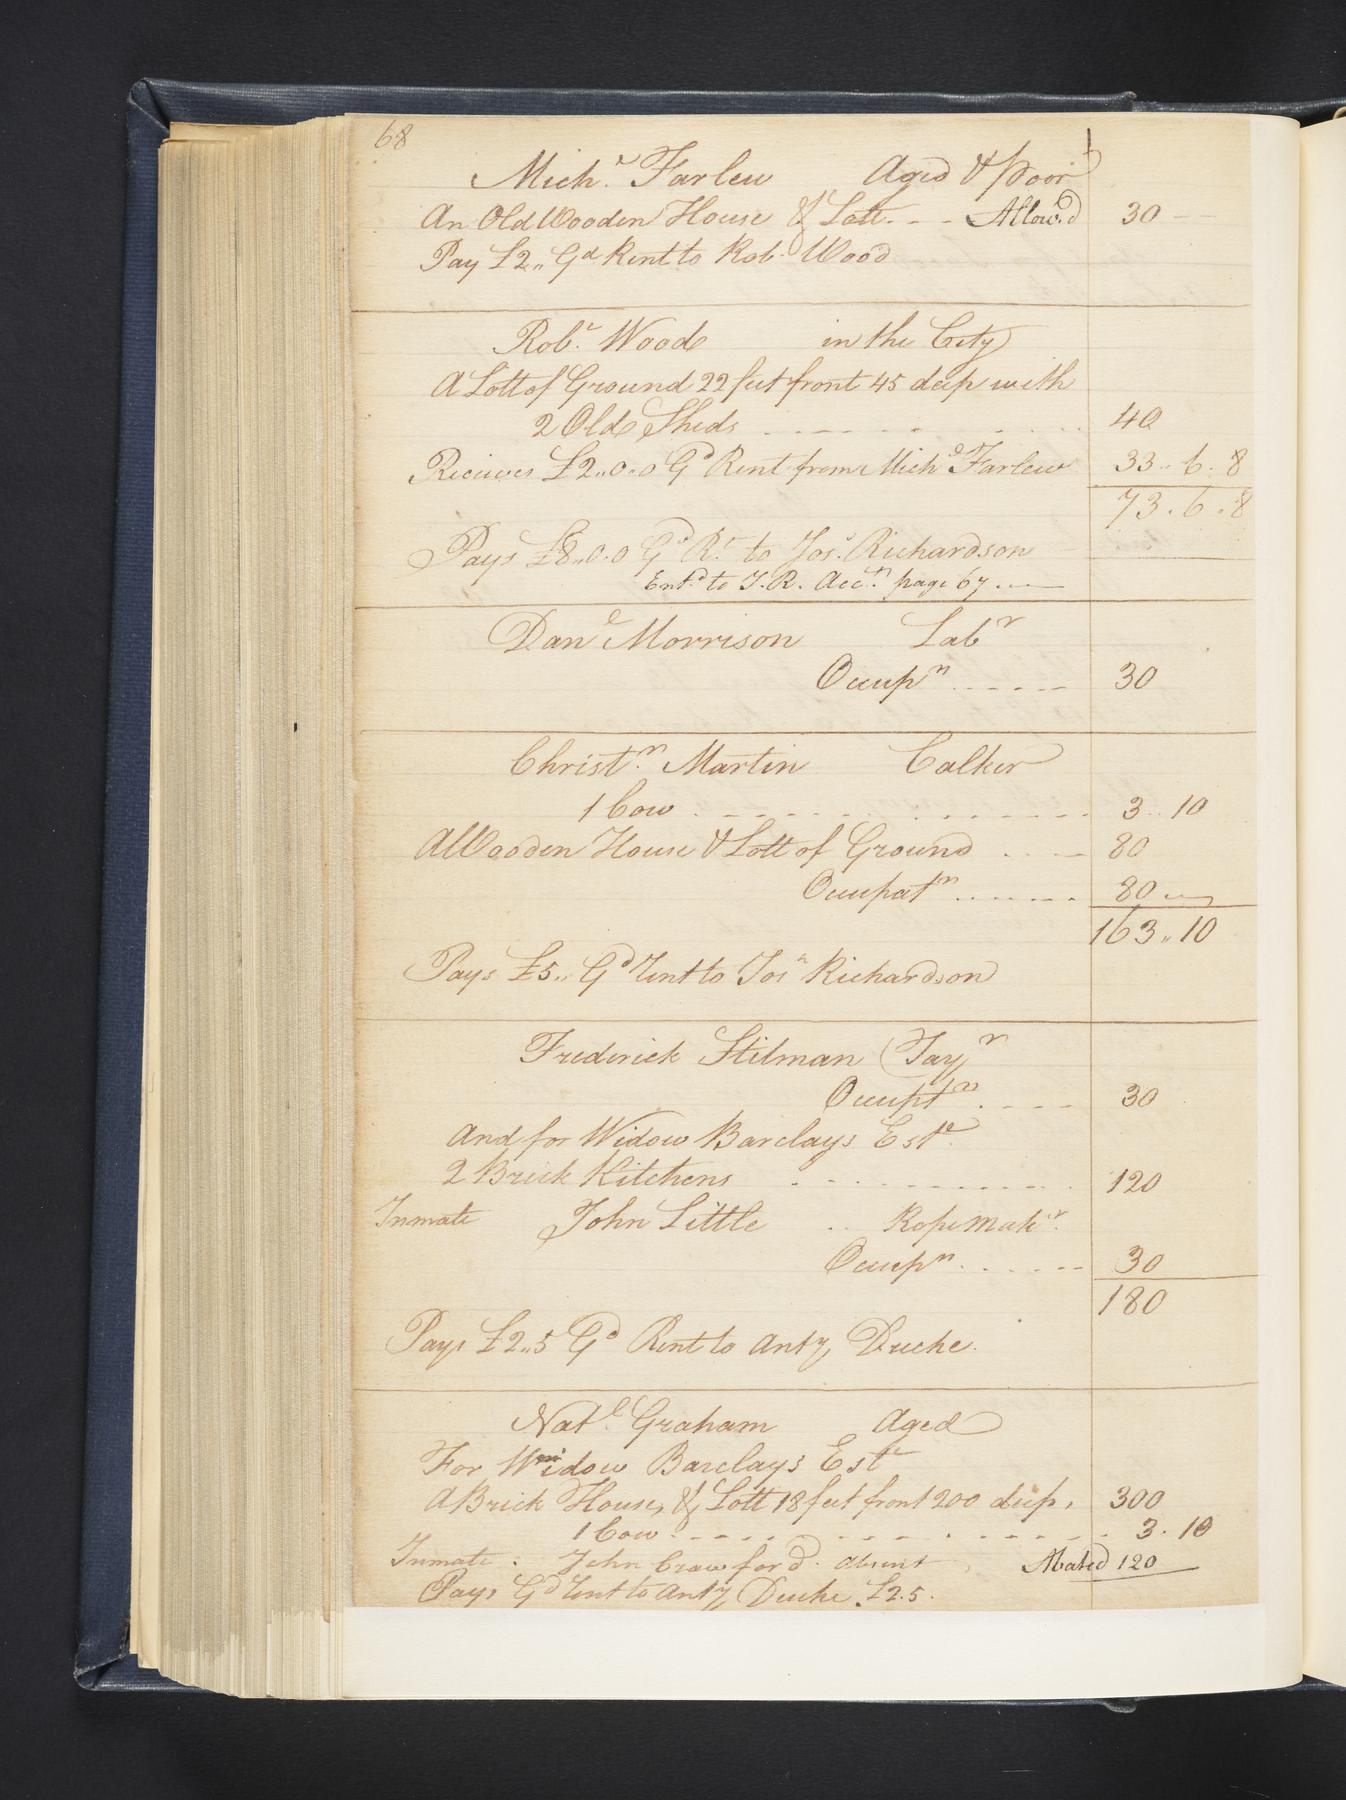 68
Mich.l Farlew Aged & Poor
An Old Wooden House & Lott. - - Allow.d 30
Pay £2,, Gd Rent to Rob. Wood
Rob.t Wood in the City
A Lott of Ground 22 feet front 45 deep with
2 Old Sheds 40
Recieves £2,,0,,0 Gd Rent from Michl Farlew 33,,6.8
73.6.8
Pays £8,,0.0 Gd R.t to Jos. Richardson
Ent.d to J.R. Acc.t page 67
Danl Morrison Labr
Occupn 30
Christ.r Martin Calker
1 Cow 3..10
A Wooden House & Lott of Ground 80
Occupatn 80
163,,10
Pays £5,, Gd Rent to Jos Richardson
Frederick Stilman Tayr
Occuptn 30
And for Widow Barclays Este
2 Brick Kitchens 120
Inmate John Little Rope Makr.
Occupn 30
180
Pays £2,,5 Gd Rent to Anty Duche.
Nat.l Graham Aged
For Widow Barclays Este
A Brick House, & Lott 18 feet front 200 deep, 300
1 Cow 3.10
Inmate. John Crawford. Absent Abated 120
Pays Gd Rent to Anty Duche £2.5.